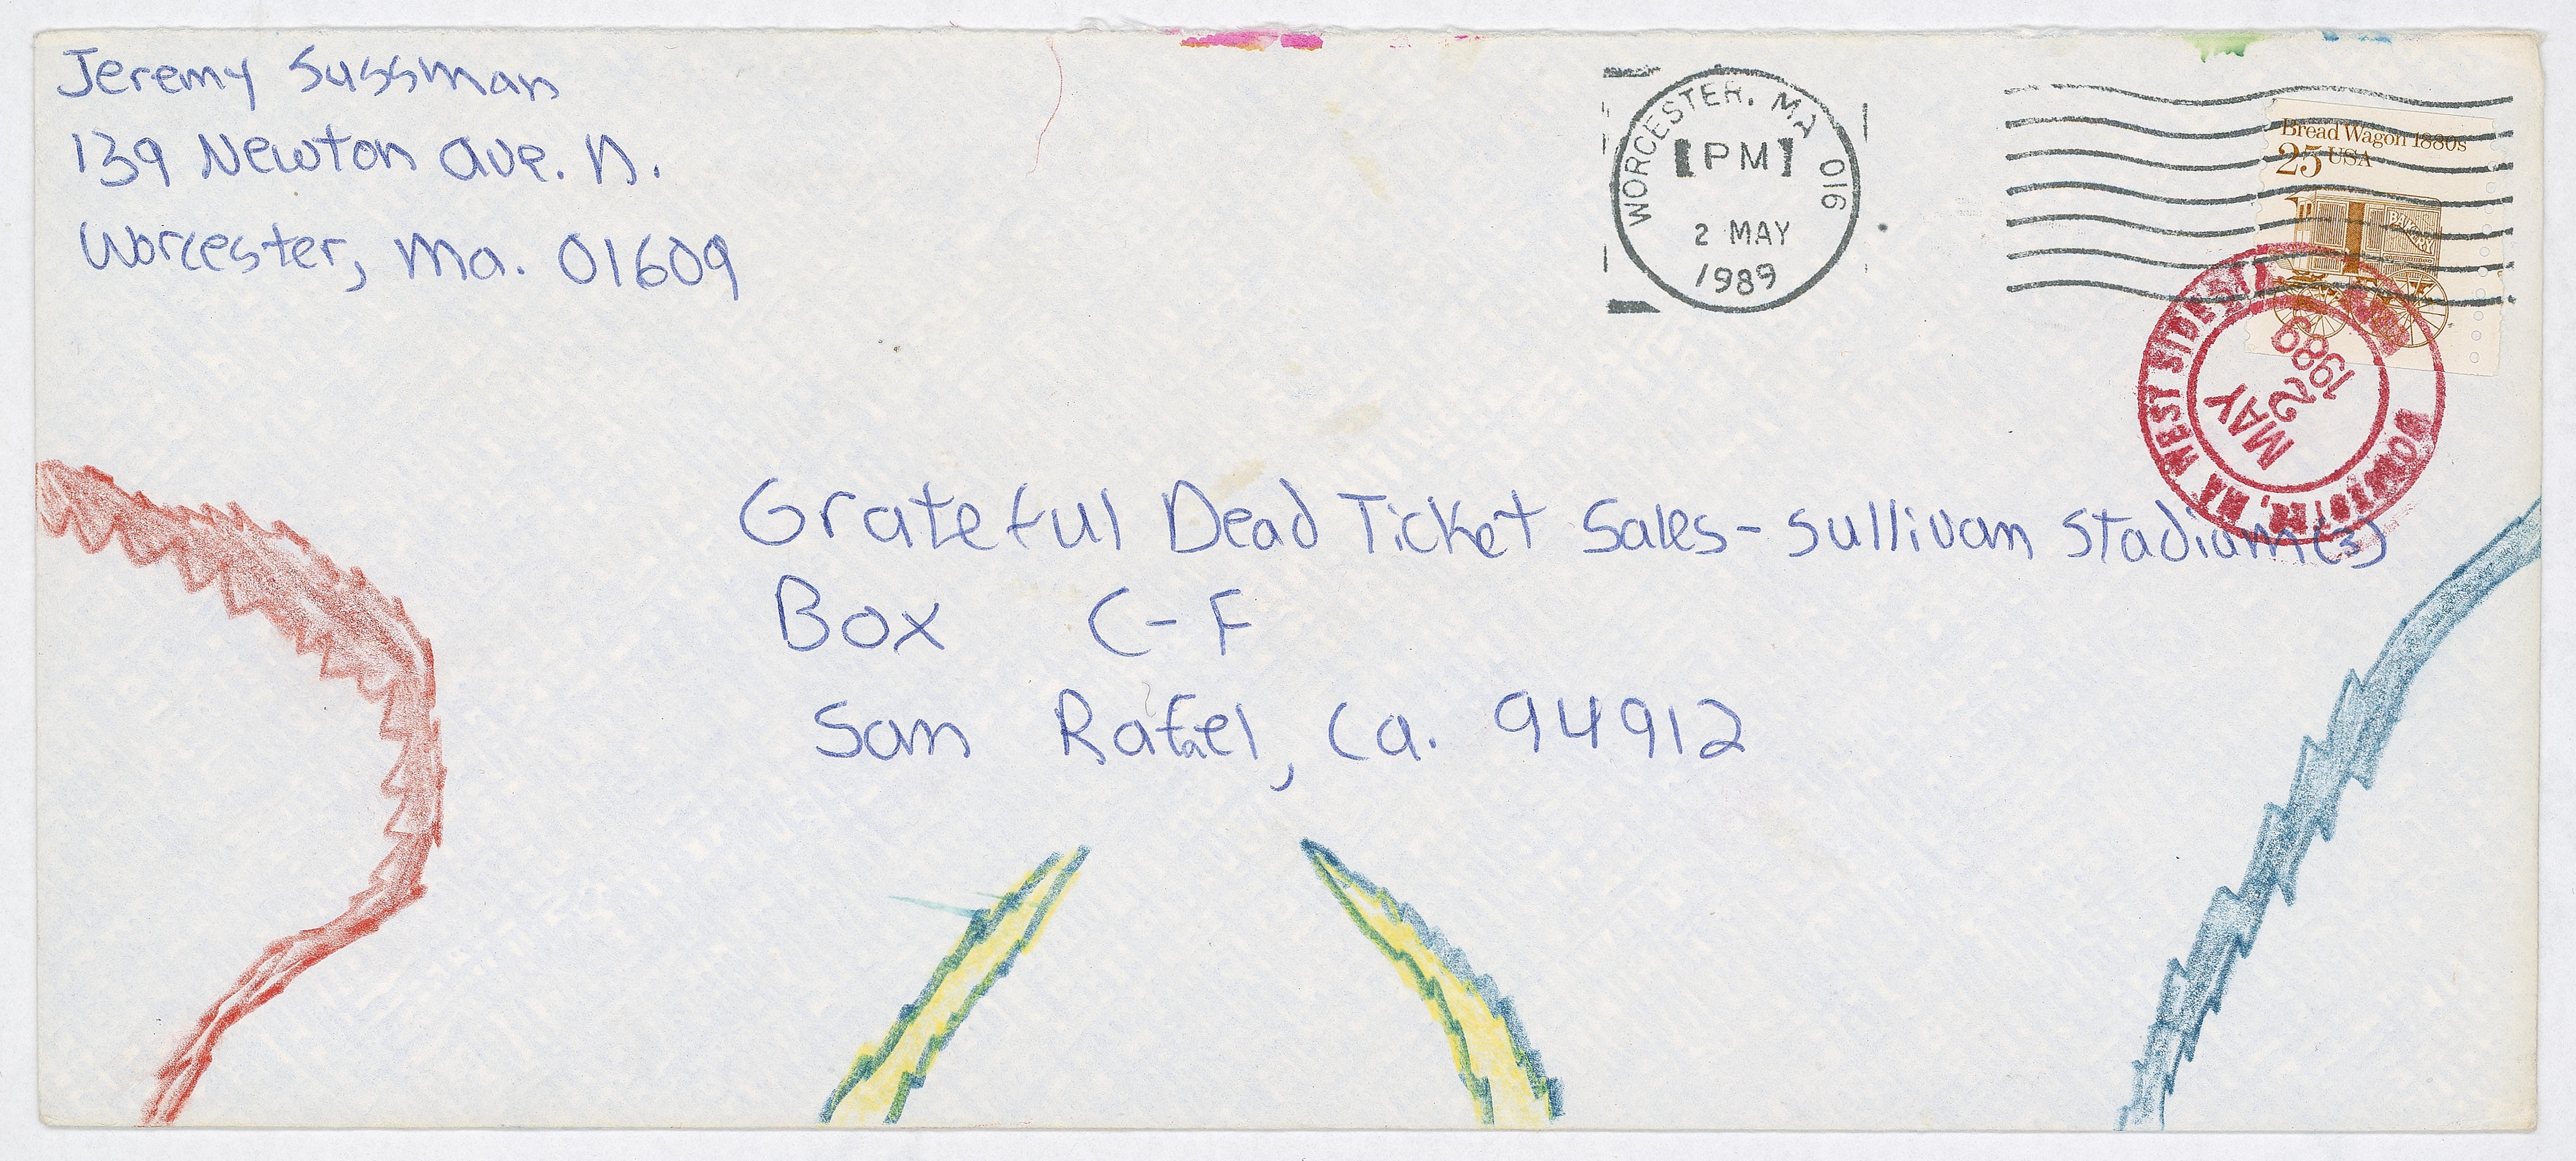 Jeremy Sussman
139 Newton Ave. N.
Worcester, Ma. 01609
WORCESTER, MA 016
PM
2 MAY
1989
Bread Wagon 1880s
25 USA
BAKERY
WEST SIDE STA
MAY
2
1989
WORCESTER, MA
Grateful Dead Ticket Sales - Sullivan Stadium (3)
Box C-F
San Rafael, Ca. 94912